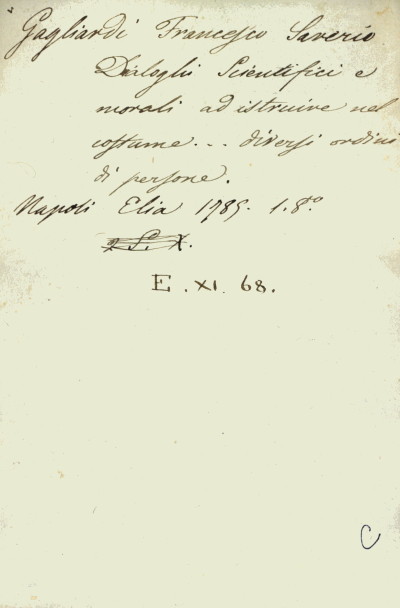 Gagliardi Francesco Saverio
Dialoghi Scientifici e
morali ad istruire nel
costume... diversi ordini
di persone.
Napoli Elia 1785. 1.8º.
E. XI. 68.
C